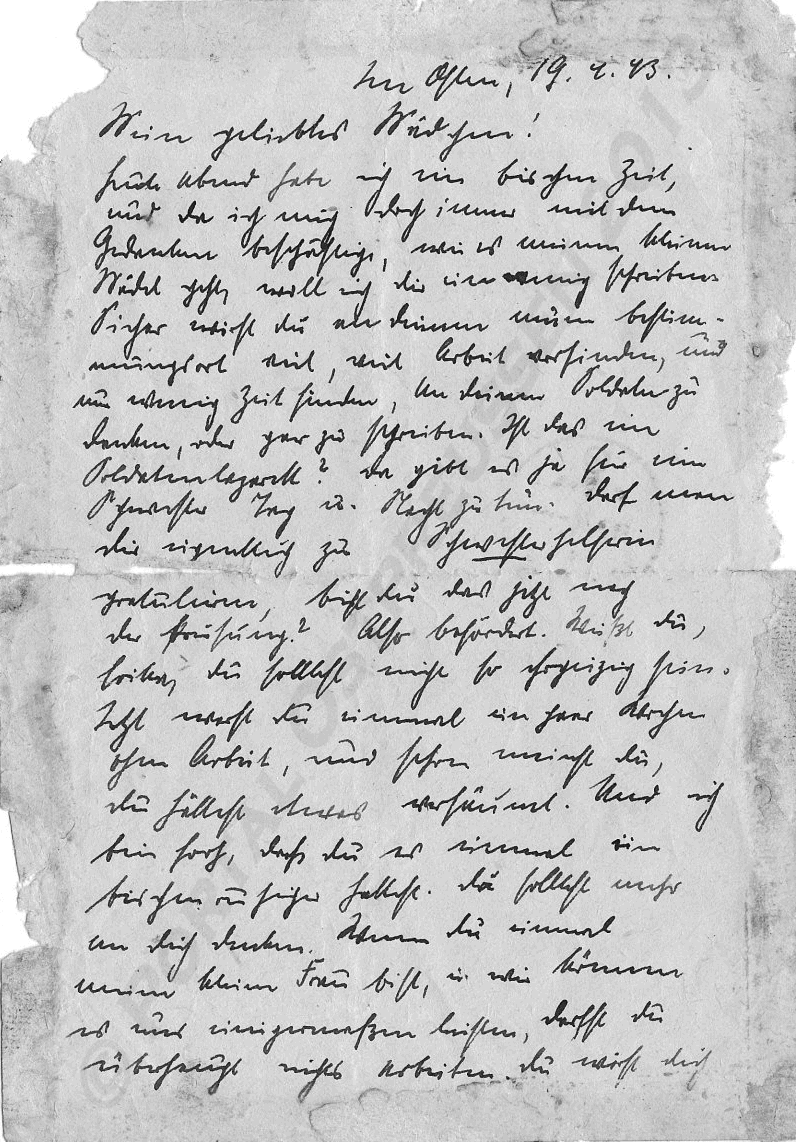 Im Osten, 19. 4. 43.
Mein geliebtes Mädchen!
Heute Abend habe ich ein bischen Zeit,
und da ich mich doch immer mit dem
Gedanken beschäftige, wie es meinem kleinen
Mädel geht, will ich dir ein wenig schreiben.
Sicher wirst du an deinem neuen bestim-
mungsort viel, viel Arbeit vorfinden, und
nur wenig Zeit finden, an deinen Soldaten zu
denken, oder gar zu schreiben. Ist das ein
Soldatenlazarett? Da gibt es ja für eine
Schwester Tag u. Nacht zu tun. Darf man
dir eigentlich zur Schwesterhelferin
gratulieren, bist du das jetzt nach
der Prüfung? Also befördert. Weißt du,
du solltest nicht so ehrgeizig sein.
Jetzt warst du einmal ein paar Wochen
ohne Arbeit, und schon meinst du,
du hättest etwas versäumt. Und ich
bin froh, dass du es einmal ein
bischen ruhiger hattest. Du solltest mehr
an dich denken. Wenn du einmal
meine kleine Frau bist, u. wir können
es uns einigermaßen leisten, darfst du
überhaupt nichts arbeiten. Du wirst dich
© PORTAL OSTPREUSSEN 2015